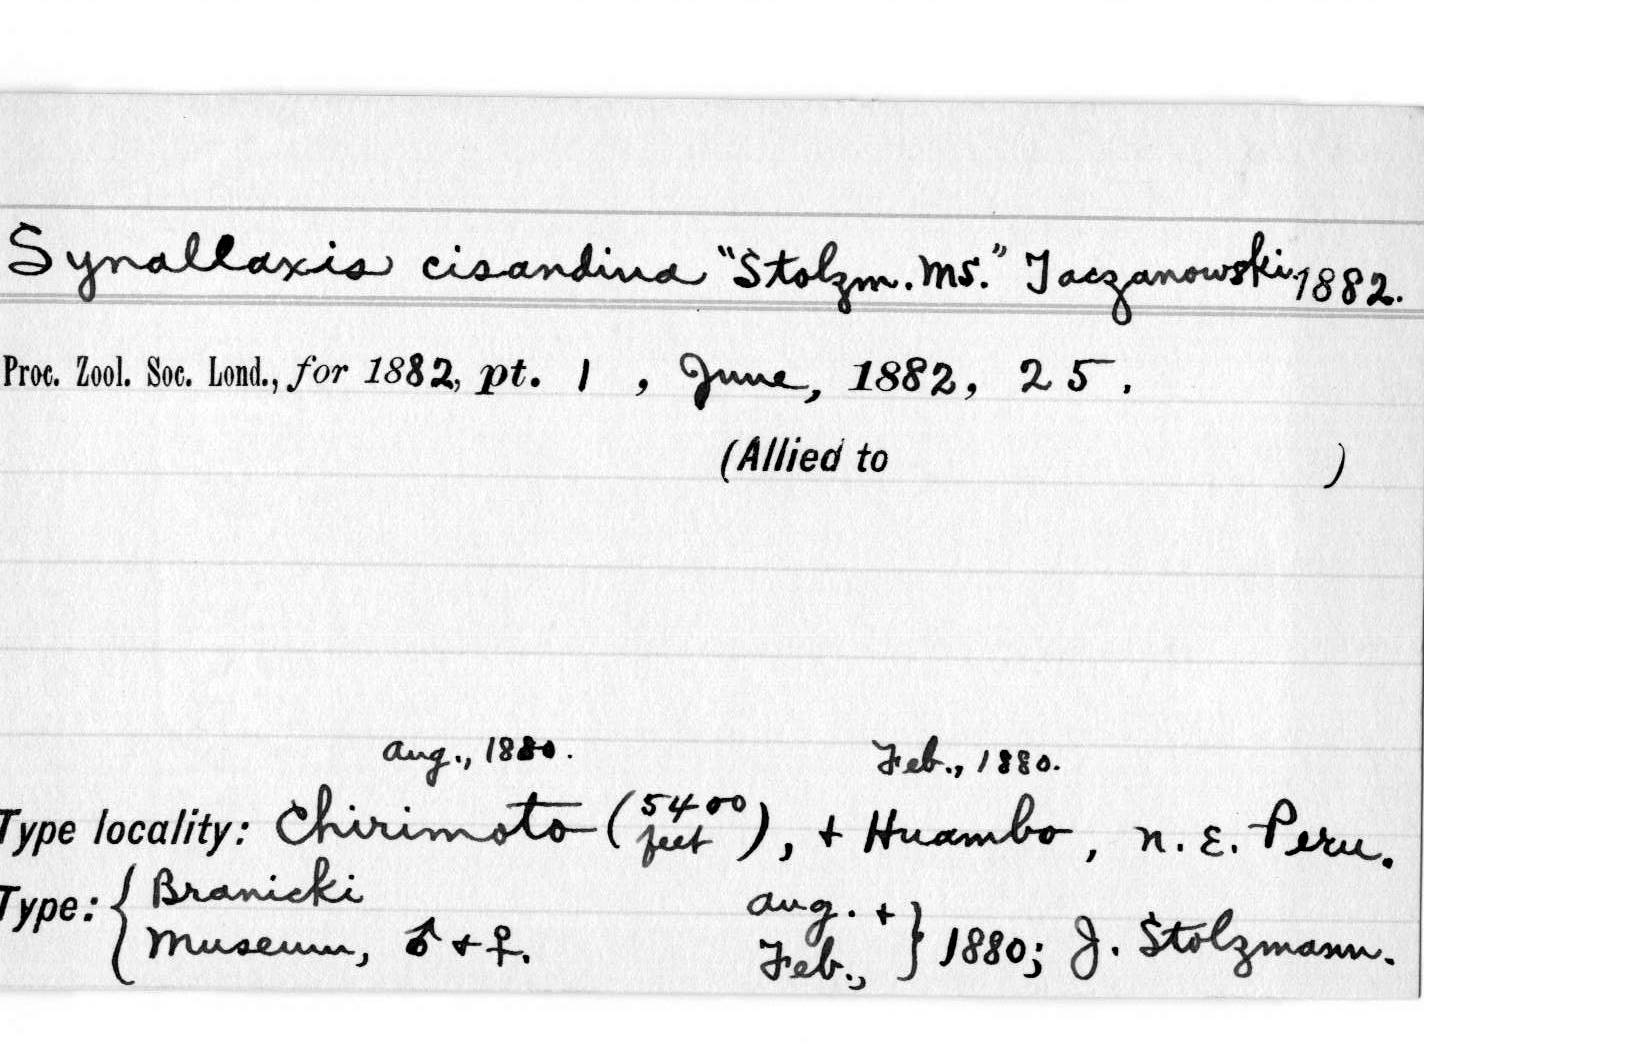 Synallaxis cisandina "Stolzm. MS." Taczanowski, 1882.
Proc. Zool. Soc. Lond., for 1882, pt. 1, June, 1882, 25.
(Allied to )
Aug., 1880. Feb., 1880.
Type locality: Chirimoto (5400 feet), + Huambo, N. E. Peru.
Type: { Branicki Aug. + }
Museum, ♂ + ♀. Feb., 1880; J. Stolzmann.